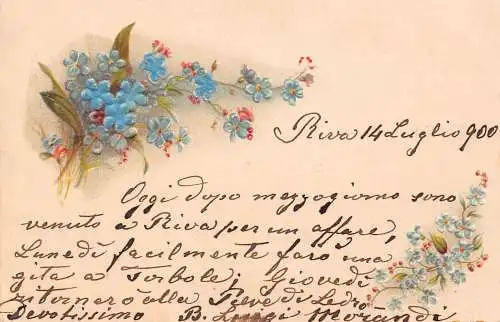 Riva 14 Luglio 900
Oggi dopo mezzogiorno sono
venuto a Riva per un affare,
Lunedì facilmente farò una
gita a Torbole; Giovedì
ritornerò alla Pieve di Ledro
Devotissimo B. Luigi Morandi